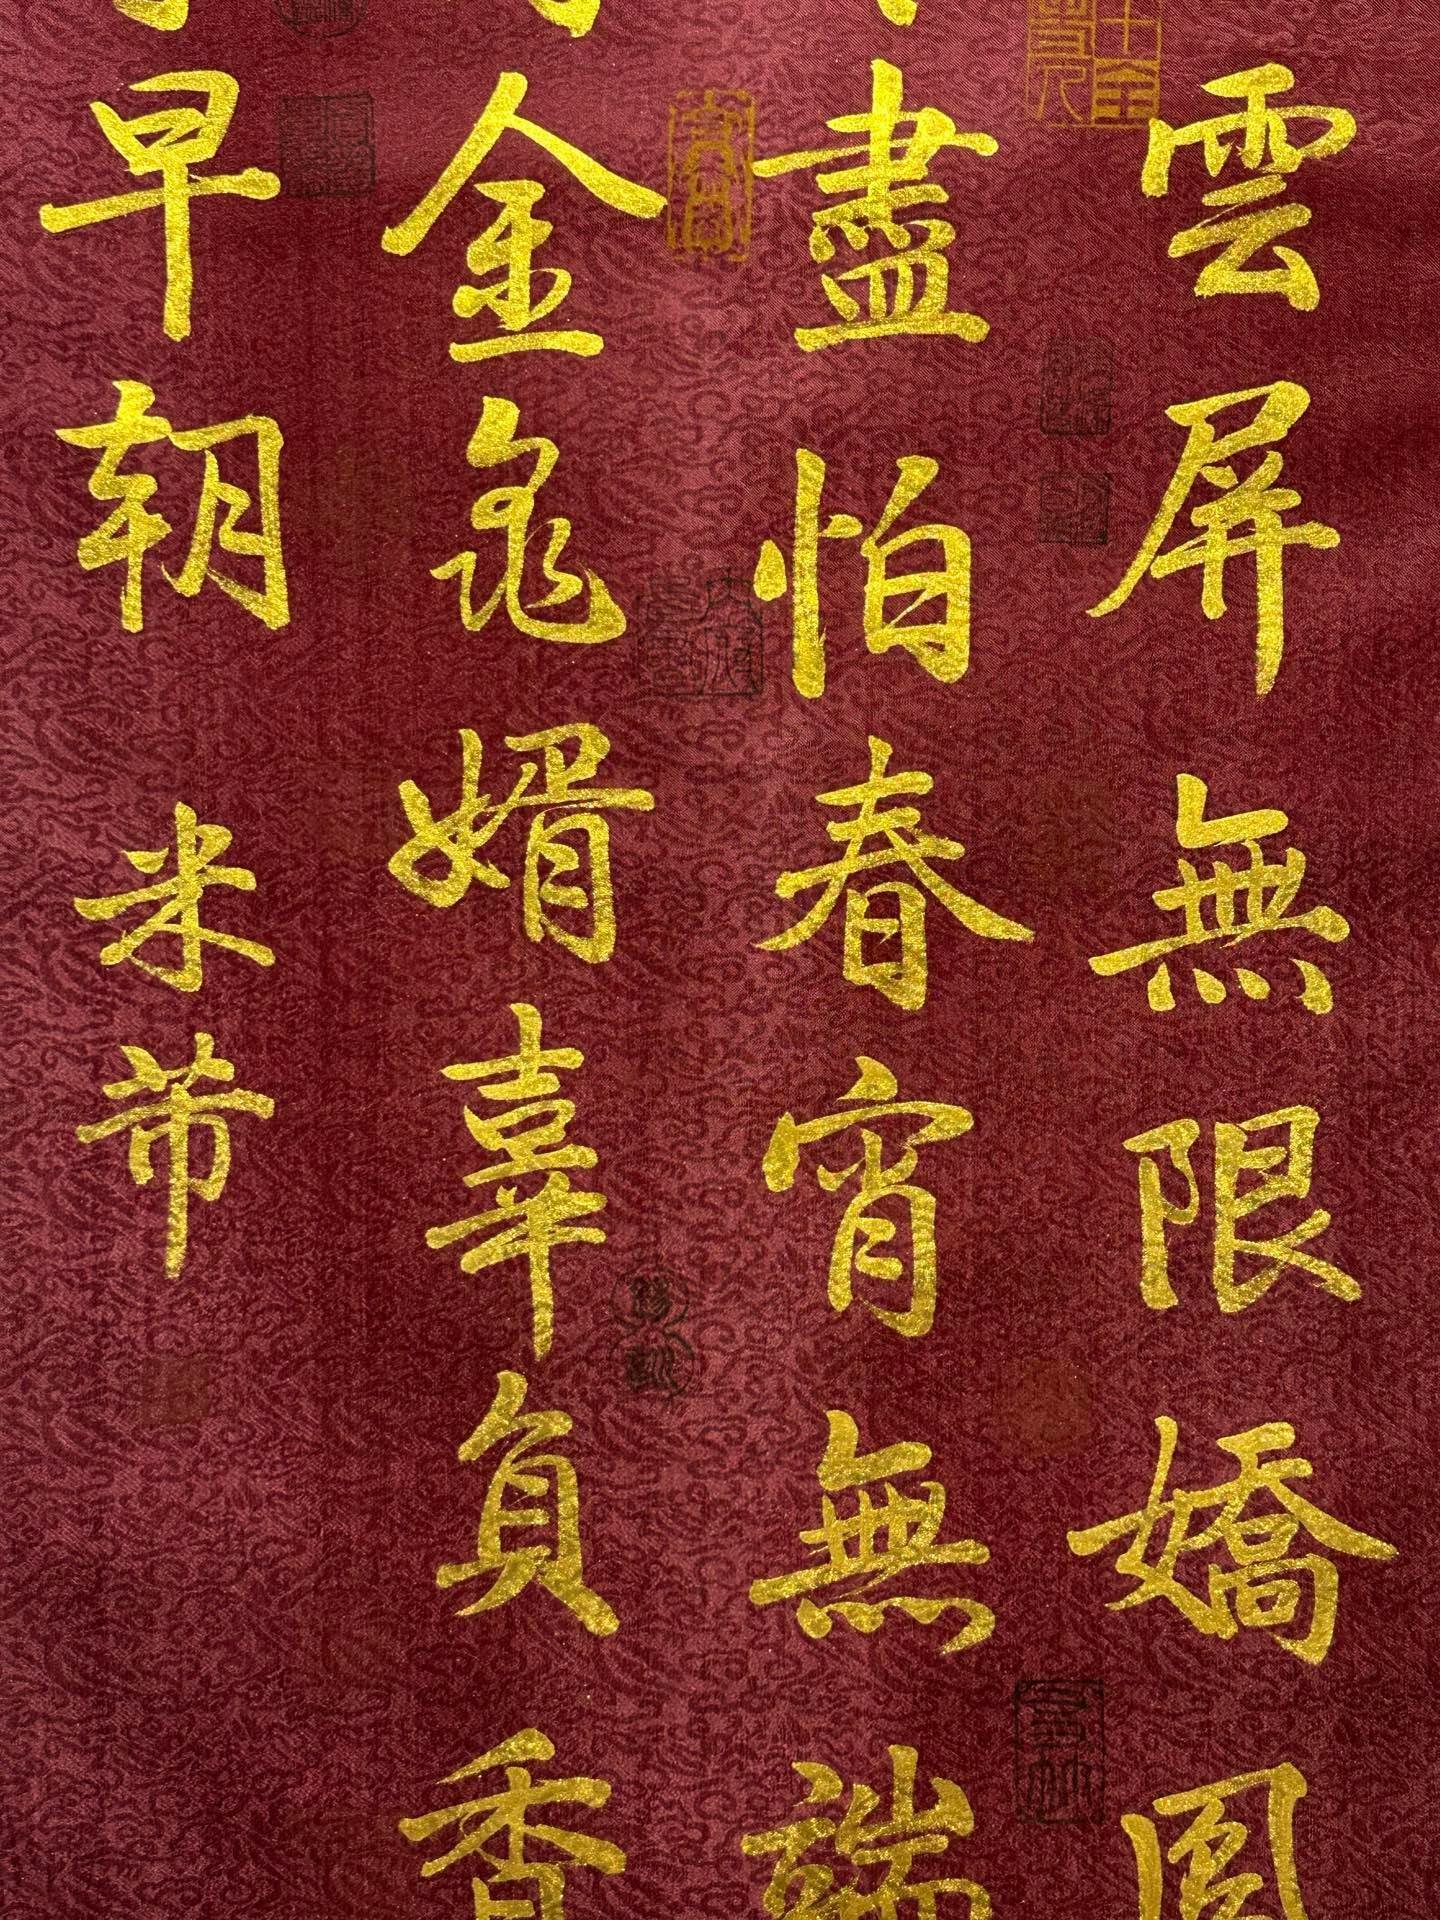 雲屏無限嬌鳳
盡怕春宵無端
金龜婿辜負香
早朝 米芾